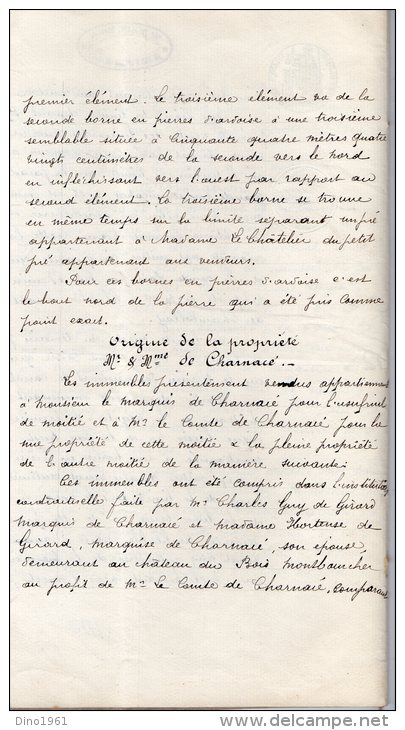 premier élément. Le troisième élément va de la
seconde borne en pierres d'ardoise à une troisième
semblable située à Cinquante quatre mètres quatre
vingts centimètres de la seconde vers le nord
en infléchissant vers l'ouest par rapport au
second élément. La troisième borne se trouve
en même temps sur la limite séparant un pré
appartenant à Madame Le Châtelier du petit
pré appartenant aux vendeurs.
Pour ces bornes en pierres d'ardoise c'est
le bout nord de la pierre qui a été pris comme
point exact.
Origine de la propriété
Mr & Mme de Charnacé.
Les immeubles présentement vendus appartiennent
à Monsieur le marquis de Charnacé pour l'usufruit
de moitié et à Mr le Comte de Charnacé pour la
nue propriété de cette moitié & la pleine propriété
de l'autre moitié de la manière suivante.
Ces immeubles ont été compris dans l'institution
contractuelle faite par Mr Charles Guy de Girard
Marquis de Charnacé et madame Hortense de
Girard, marquise de Charnacé, son épouse,
demeurant au château du Bois Montboucher
au profit de Mr le Comte de Charnacé, comparant
Dino1961
www.delcampe.net